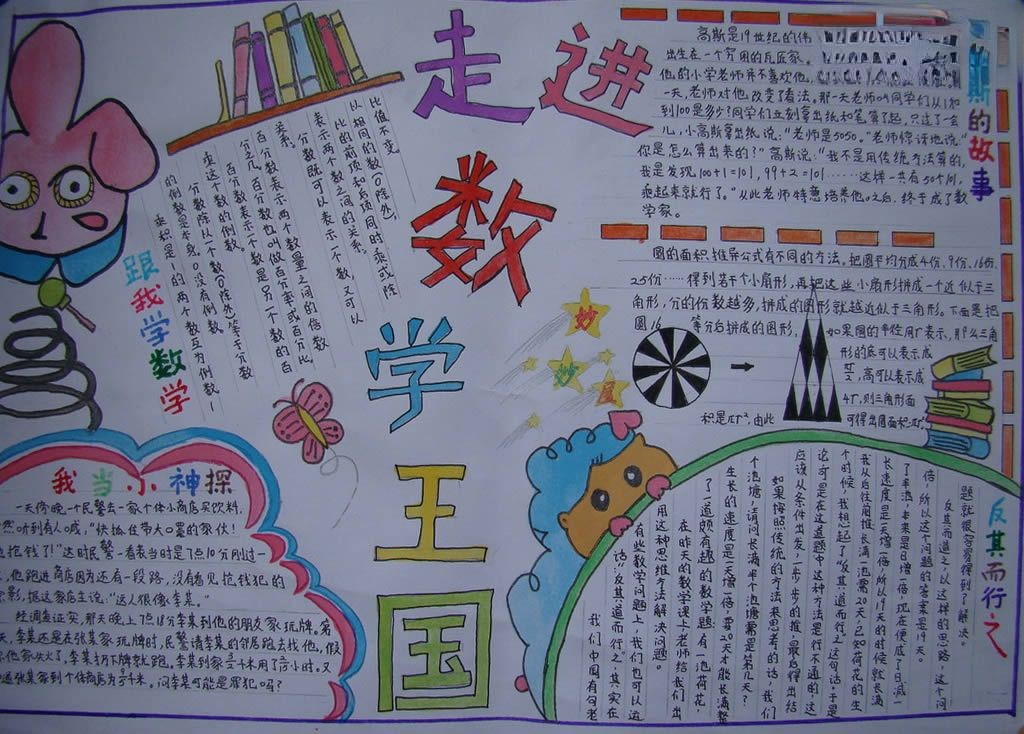 走进
数
学
王
国
高斯的故事
高斯是19世纪的伟
出生在一个穷困的瓦匠家
他的小学老师并不喜欢他,
一天,老师对他改变了看法。那一天老师叫同学们从1加
到100是多少?同学们立刻拿出纸和笔算了起,只过了一会
儿,小高斯拿出纸说:“老师是5050。”老师惊讶地说:“
你是怎么算出来的?”高斯说:“我不是用传统方法算的,
我是发现,100+1=101,99+2=101……这样一共有50个101,
乘起来就行了。”从此老师特意培养他。之后,终于成了数
学家。
圆的面积推导公式有不同的方法。把圆平均分成4份、9份、16份、
25份……得到若干个小扇形,再把这些小扇形拼成一个近似于三
角形,分的份数越多,拼成的图形就越近似于三角形。下面是把
圆16等分后拼成的图形,如果圆的半径用r表示,那么三角
形的底可以表示成
高可以表示成
4r,则三角形面
积是πr²,由此可得出圆面积=πr²
妙
妙
屋
跟我学数学
比值不变。
以相同的数(0除外),
比的前项和后项同时乘或除
表示两个数之间的关系。
分数既可以表示一个数,又可以
关系。
百分数表示两个数量之间的倍数
分之几。百分数也叫做百分率或百分比。
百分数表示一个数是另一个数的百
乘这个数的倒数。
分数除以一个数(0除外)等于分数
的倒数是本身。0没有倒数。
乘积是1的两个数互为倒数,1
我当小神探
一天傍晚,一个民警去一家个体小商店买饮料,
然听到有人喊,“快抓住带大口罩的家伙!
抢钱了!”这时民警一看表当时是7点10分刚过一
,他跑进商店因为还有一段路,没有看见抢钱犯的
影,据这家店主说:“这人很像李某。”
经调查证实,那天晚上7点18分李某到他的朋友家玩牌。第
天,李某还是在张某家玩牌时,民警请李某的邻居跑去找他,假
他家失火了,李某扔下牌就跑。李某到家
张某家到个体商店为
问李某可能是罪犯吗?
反其而行之
我们中国有句老
话“反其道而行之”。其实在
有些数学问题上,我们也可以运
用这种思维方法解决问题。
在昨天的数学课上老师给我们出
了一道颇有趣的数学题:有一池荷花,
生长的速度是一天增一倍,要20天才能长满整
个池塘,请问长满半个池塘需是第几天?
如果按照传统的方法来思考的话,我们
应该从条件出发,一步一步的推,最后得出结
论,可是在这道题中这种方法是行不通的,这
个时候,我想起了“反其道而行之”这句话。于是
我从后往前推,长满一池需20天,已知荷花的生
长速度是一天增一倍,所以19天的时候就长满
了半池,本来是日增一倍,现在便成了日减一
倍,所以这个问题的答案是19天。
反其而道之,以这样的思路,这个问
题就很容易得到了解决。